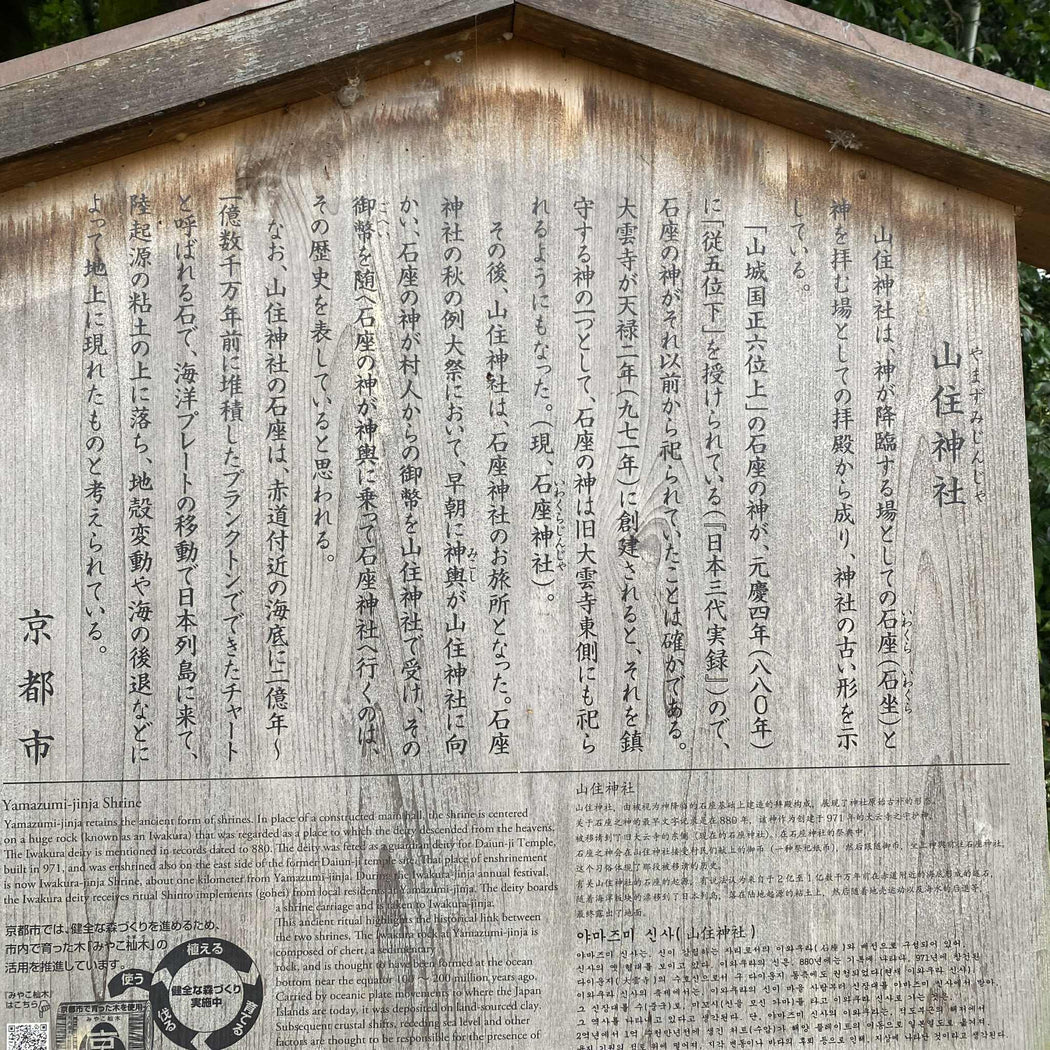 やまずみじんじゃ
山住神社
山住神社は、神が降臨する場としての石座(石坐)と
いわくら いわくら
神を拝む場としての拝殿から成り、神社の古い形を示
している。
「山城国正六位上」の石座の神が、元慶四年(八八〇年)
に「従五位下」を授けられている(『日本三代実録』)ので、
石座の神がそれ以前から祀られていたことは確かである。
大雲寺が天禄二年(九七一年)に創建されると、それを鎮
守する神の一つとして、石座の神は旧大雲寺東側にも祀ら
れるようにもなった。(現、石座神社)。
いわくらじんじゃ
その後、山住神社は、石座神社のお旅所となった。石座
神社の秋の例大祭において、早朝に神輿が山住神社に向
みこし
かい、石座の神が村人からの御幣を山住神社で受け、その
御幣を随へ石座の神が神輿に乗って石座神社へ行くのは、
その歴史を表していると思われる。
なお、山住神社の石座は、赤道付近の海底に二億年〜
一億数千万年前に堆積したプランクトンでできたチャート
と呼ばれる石で、海洋プレートの移動で日本列島に来て、
陸起源の粘土の上に落ち、地殻変動や海の後退などに
よって地上に現れたものと考えられている。
京都市
Yamazumi-jinja Shrine
Yamazumi-jinja retains the ancient form of shrines. In place of a constructed main hall, the shrine is centered
on a huge rock (known as an Iwakura) that was regarded as a place to which the deity descended from the heavens.
The Iwakura deity is mentioned in records dated to 880. The deity was feted as a guardian deity for Daiun-ji Temple,
built in 971, and was enshrined also on the east side of the former Daiun-ji temple site. That place of enshrinement
is now Iwakura-jinja Shrine, about one kilometer from Yamazumi-jinja. During the Iwakura-jinja annual festival,
the Iwakura deity receives ritual Shinto implements (gohei) from local residents at Yamazumi-jinja. The deity boards
a shrine carriage and is taken to Iwakura-jinja.
This ancient ritual highlights the historical link between
the two shrines. The Iwakura rock at Yamazumi-jinja is
composed of chert, a sedimentary
rock, and is thought to have been formed at the ocean
bottom near the equator 100 ~ 200 million years ago.
Carried by oceanic plate movements to where the Japan
Islands are today, it was deposited on land-sourced clay.
Subsequent crustal shifts, receding sea level and other
factors are thought to be responsible for the presence of
京都市では、健全な森づくりを進めるため、
市内で育った木「みやこ杣木」の
活用を推進しています。
「みやこ杣木」
はこちら
京都市で育った木を使用
みやこ杣木
京
植える
育てる
伐る
使う
健全な森づくり
実施中
山住神社
山住神社，由被视为神降临的石座基础上建造的拜殿构成，展现了神社原始古朴的形态。
关于石座之神的最早文字记录是在880年，该神作为创建于971年的大云寺之守护神，
被移请到了旧大云寺的东侧（现在的石座神社）。在石座神社的祭典中，
石座之神会在山住神社接受村民的献上的御币（一种祭祀纸币），然后跟随御币、坐上神舆前往石座神社，
这个习俗体现了那段被移请的历史。
随着海洋板块的漂移到了日本列岛，落在陆地起源的粘土上，然后随着地壳运动以及海水的后退等，
最终露出了地面。
야마즈미 신사(山住神社)